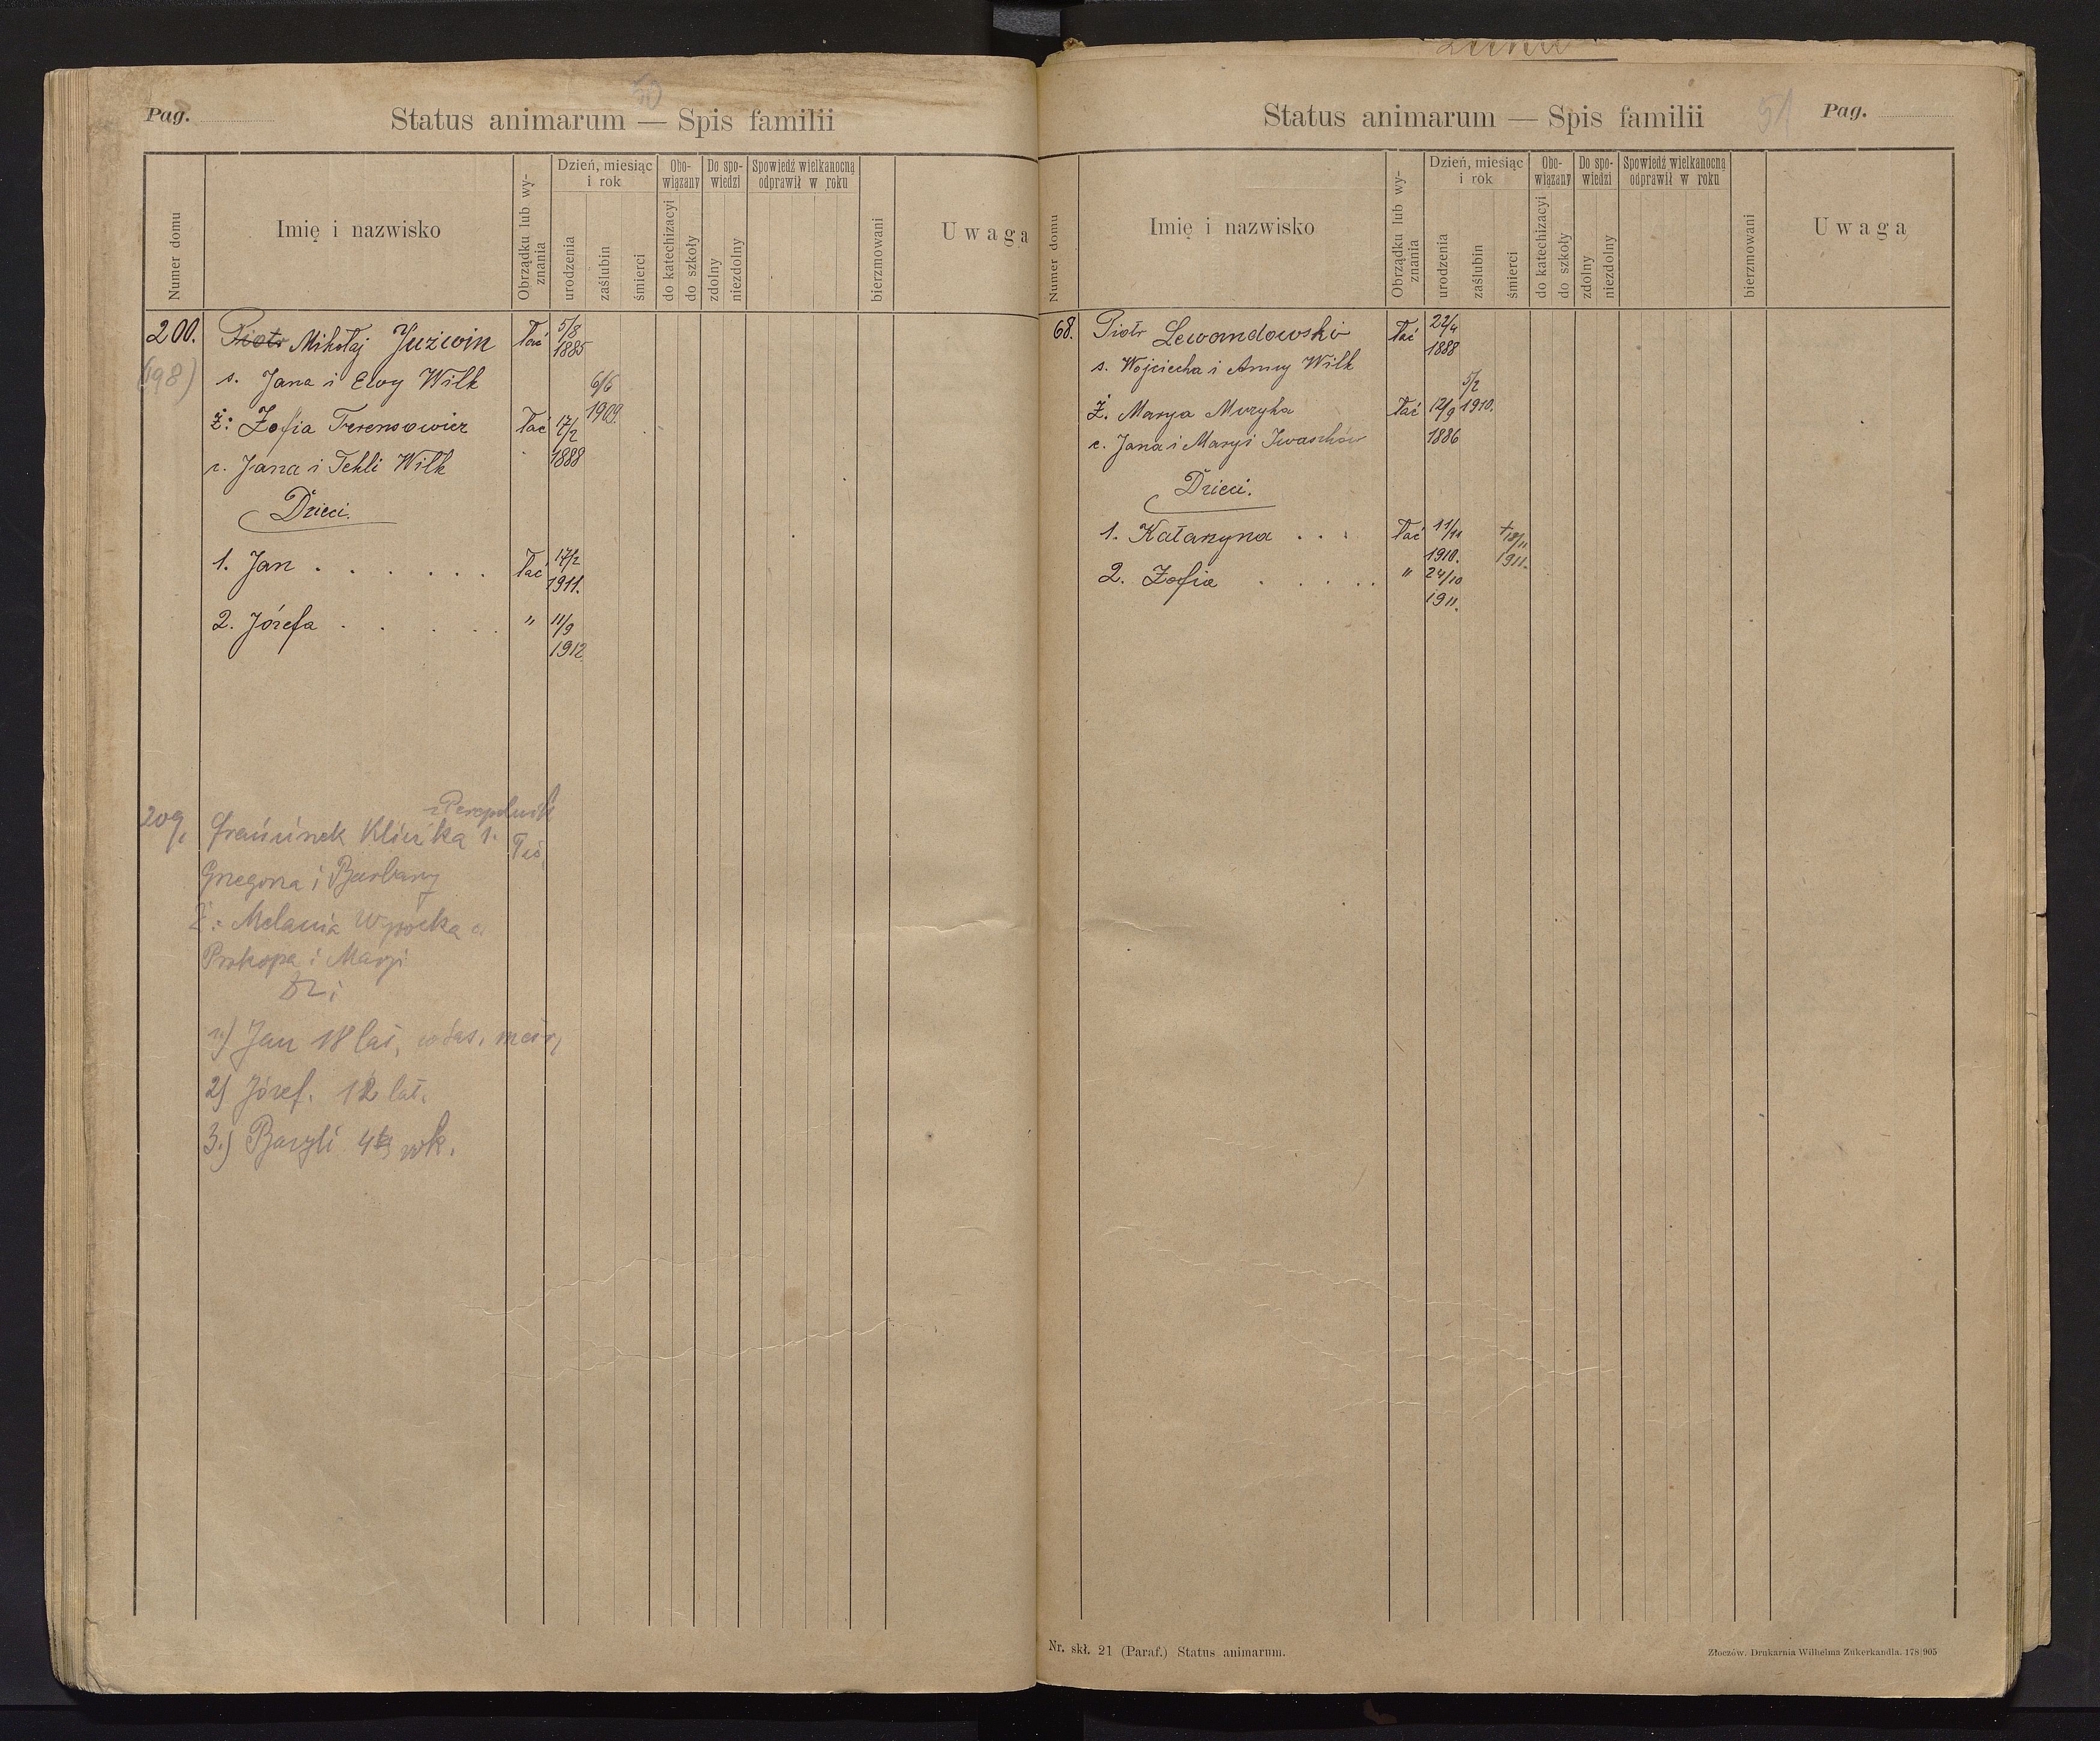 Pag.
50
Status animarum — Spis familii
Numer domu
Imię i nazwisko
Obrządku lub wy-
znania
Dzień, miesiąc
i rok
urodzenia
zaślubin
śmierci
Obo-
wiązany
do katechizacyi
do szkoły
Do spo-
wiedzi
zdolny
niezdolny
Spowiedź wielkanocną
odprawił w roku
bierzmowani
Uwaga
200. Piotr Mikołaj Juźwin łać 5/8
1885
(198) s. Jana i Ewy Wilk 6/6
1909.
Ż: Zofia Terensowicz łać 17/2
1888
c. Jana i Tekli Wilk
Dzieci.
1. Jan . . . . . . łać 17/2
1911.
2. Józefa . . . . . " 11/9
1912
209,
Grzegorza i Barbary
Ż: Melania Wysocka c.
Prokopa i Maryi
1) Jan 18 lat,
2) Józef. 12 lat.
3.) Bazyli
51
Status animarum — Spis familii
Pag.
Numer domu
Imię i nazwisko
Obrządku lub wy-
znania
Dzień, miesiąc
i rok
urodzenia
zaślubin
śmierci
Obo-
wiązany
do katechizacyi
do szkoły
Do spo-
wiedzi
zdolny
niezdolny
Spowiedź wielkanocną
odprawił w roku
bierzmowani
Uwaga
68. Piotr Lewandowski łać 22/4
1888
s. Wojciecha i Anny Wilk
5/2
Ż. Marya Muzyka łać 12/9 1910.
c. Jana i Maryi Iwaschów 1886
Dzieci.
1. Katarzyna . . . łać 11/11 † 18/11
1910. 1911.
2. Zofia . . . . . " 24/10
1911.
Nr. skł. 21 (Paraf.) Status animarum.
Złoczów. Drukarnia Wilhelma Zukerkandla. 178|905